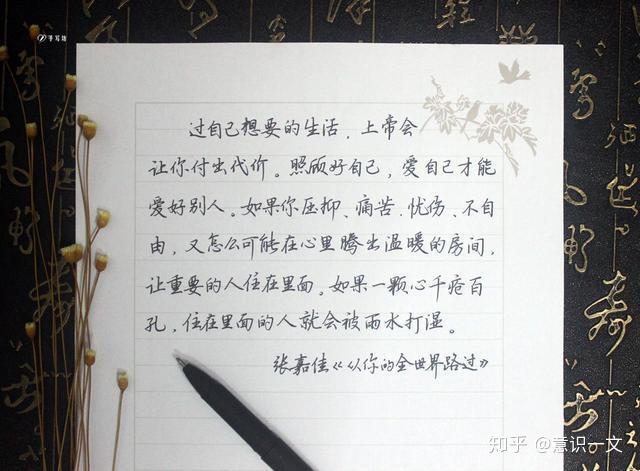 手写坊
过自己想要的生活，上帝会
让你付出代价。照顾好自己，爱自己才能
爱好别人。如果你压抑、痛苦、忧伤、不自
由，又怎么可能在心里腾出温暖的房间，
让重要的人住在里面。如果一颗心千疮百
孔，住在里面的人就会被雨水打湿。
张嘉佳《从你的全世界路过》
知乎 @意识一文